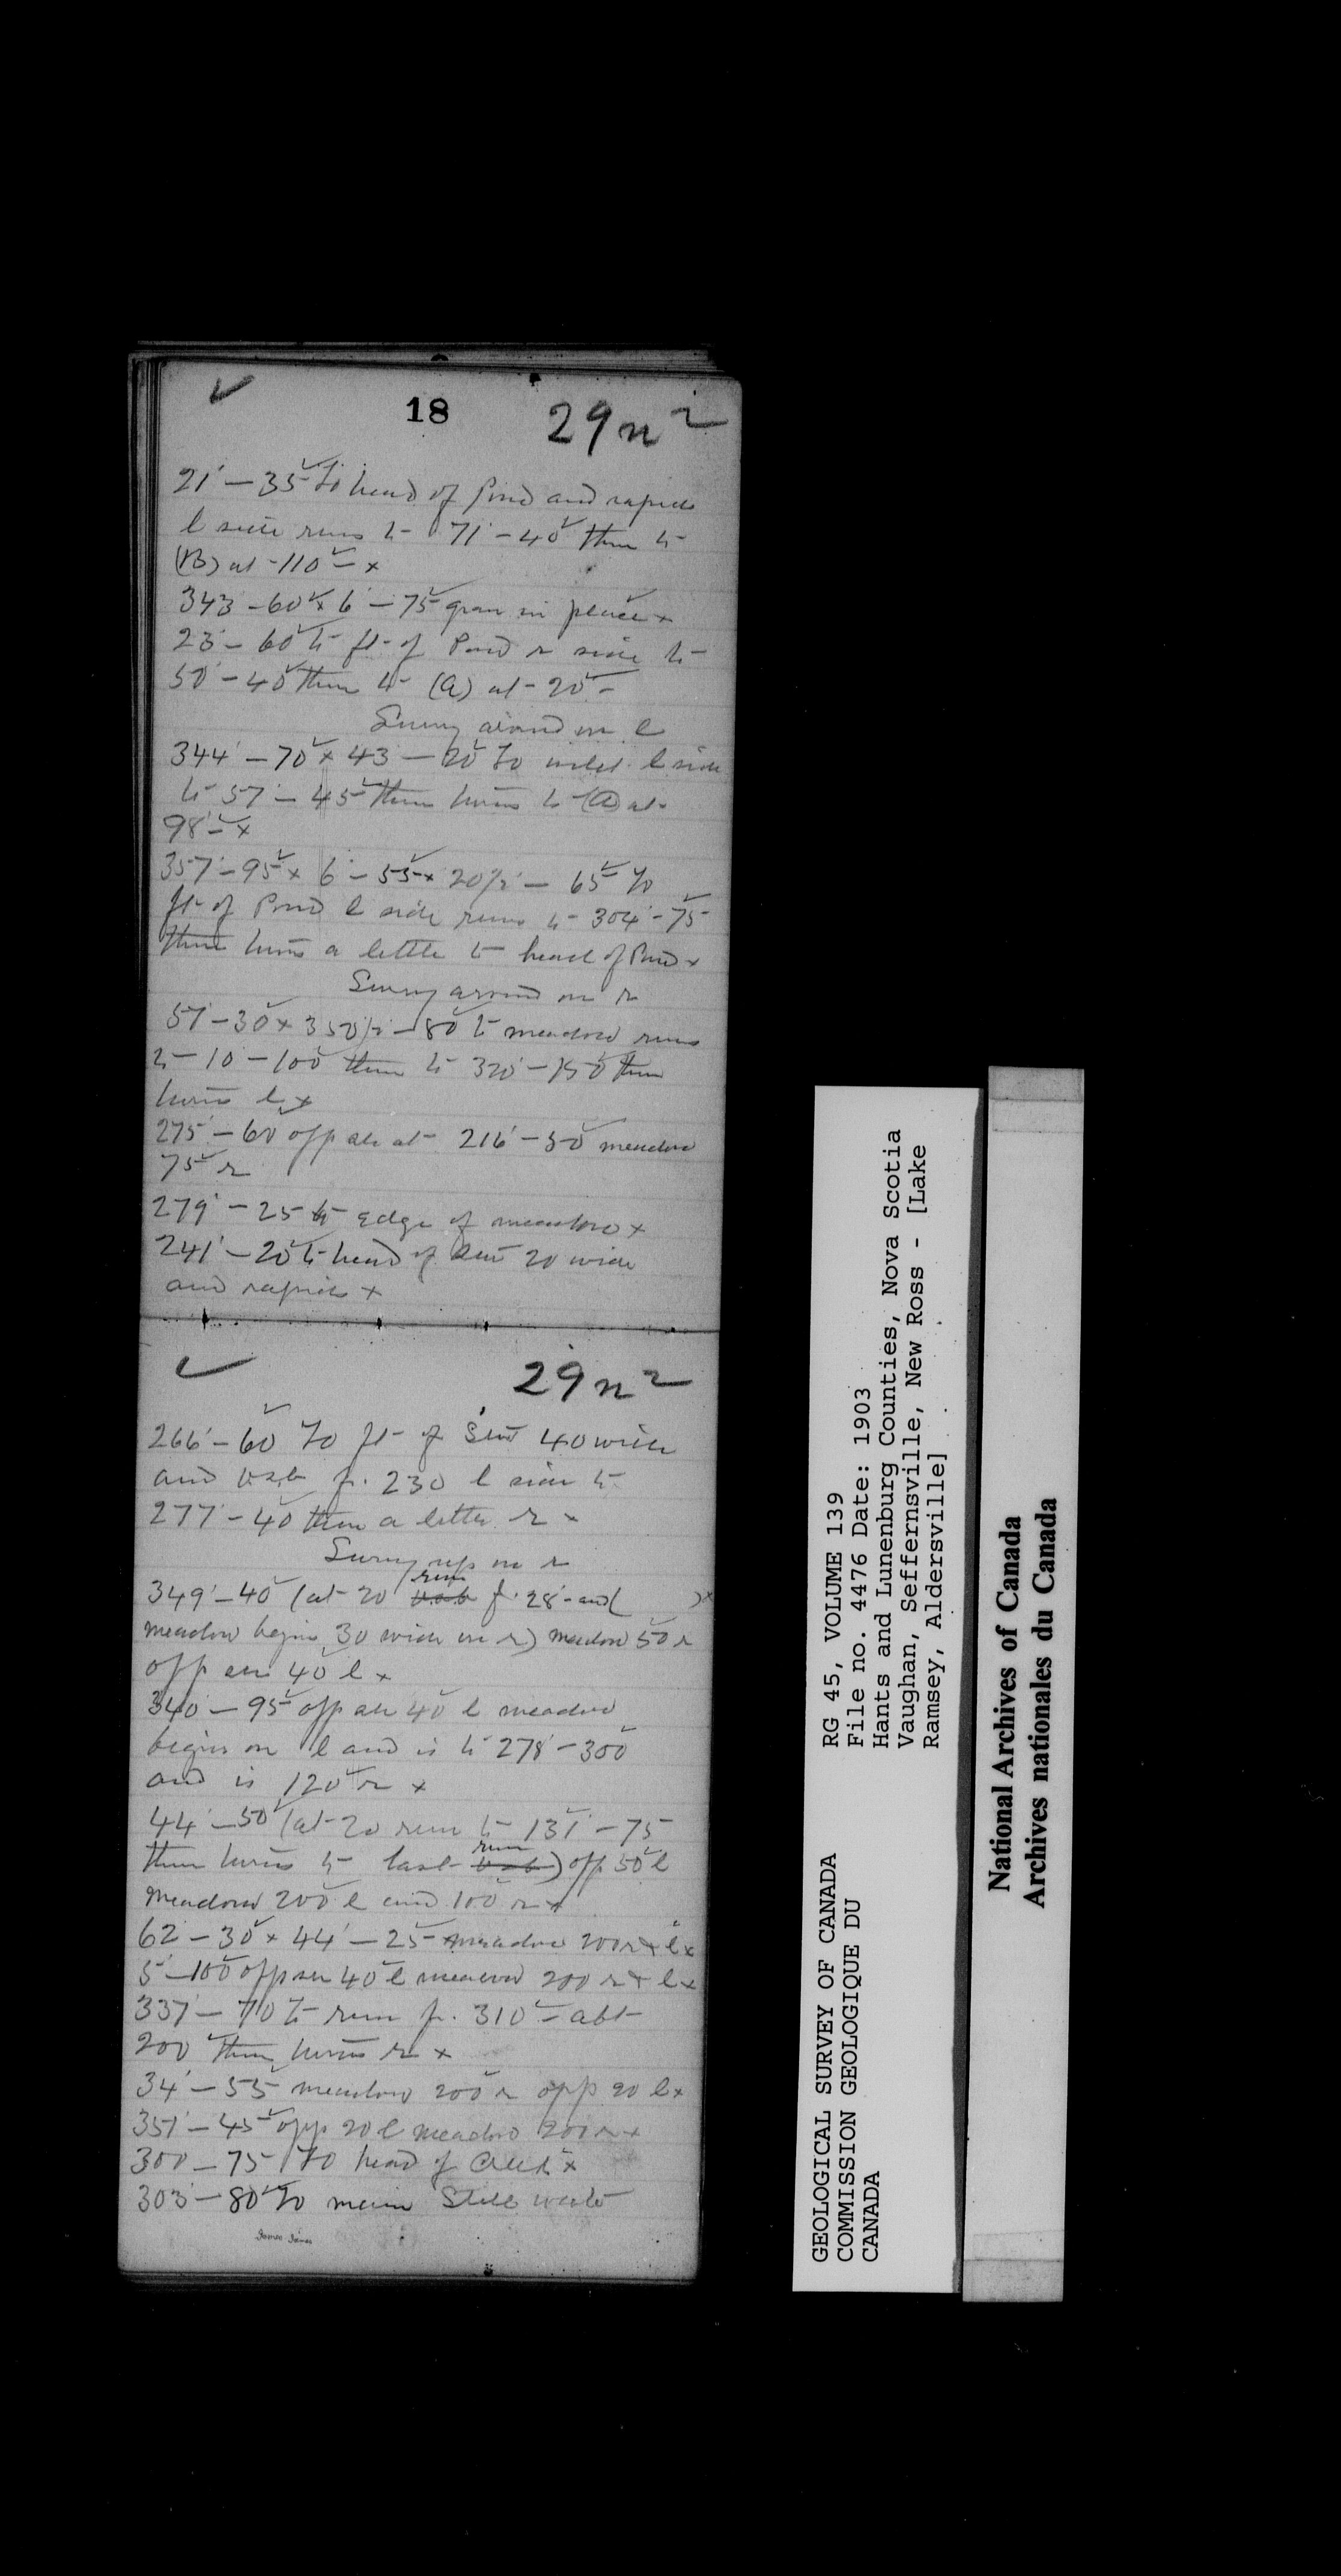 18 29 n 2
21 - 35 to head of Pond and rapids
l side runs to 71 - 40 then to
(B) at 110 - x
343 - 60 x 6 - 75 gran in place x
23 - 60 to ft of Pond r side to
50 - 40 then to (a) at 20 -
Survey around on l
344 - 70 x 43 - 20 To inlet l side
to 57 - 45 then turns to (a) at
98 - x
357 - 95 x 6 - 55 x 20 - 65 To
ft of Pond l side runs to 304 - 75
then turns a little to head of Pond x
Survey around on r
57 - 30 x 350 - 80 to meadow runs
to 10 - 100 then to 320 - 150 then
turns l x
275 - 60 opp at 216 - 50 meadow
75 r
279 - 25 to edge of meadow x
241 - 20 to head of 20 wide
and rapids x
29 n 2
266 - 60 To ft of Stw 40 wide
and f. 230 l side to
277 - 40 then a little r x
Survey up on r
run
349 - 40 (at 20 f. 28 - and ( ) x
meadow begins 30 wide on r) meadow 50 r
opp 40 l x
340 - 95 opp 40 l meadow
begins on l and is to 278 - 300
and is 120 r x
44 - 50 (at 20 run to 131 - 75
run
then turns to last ) opp 50 l
meadow 200 l and 100 r x
62 - 30 x 44 - 25 meadow 200 r + l x
5 - 100 opp 40 l meadow 200 r + l x
337 - 70 to run f. 310 - abt
200 then turns r x
34 - 55 meadow 200 r opp 20 l x
351 - 45 opp 20 l meadow 200 r x
300 - 75 To head of x
303 - 80 To main Still water
GEOLOGICAL SURVEY OF CANADA
COMMISSION GEOLOGIQUE DU
CANADA
RG 45, VOLUME 139
File no. 4476 Date: 1903
Hants and Lunenburg Counties, Nova Scotia
Vaughan, Seffernsville, New Ross - [Lake
Ramsey, Aldersville]
National Archives of Canada
Archives nationales du Canada